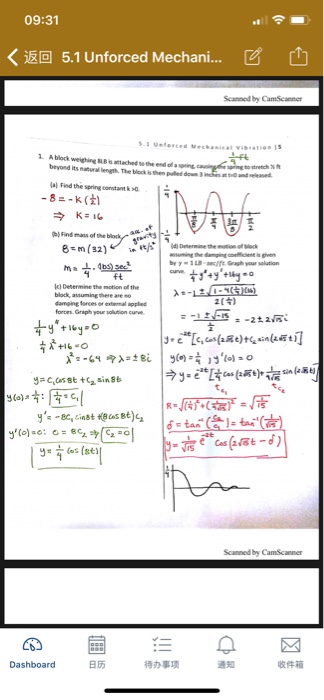 09:31
返回 5.1 Unforced Mechani...
Scanned by CamScanner
5.1 Unforced Mechanical Vibration | 5
1. A block weighing 8LB is attached to the end of a spring, causing the spring to stretch ½ ft
beyond its natural length. The block is then pulled down 3 inches at t=0 and released.
1/4 ft
(a) Find the spring constant k>0.
-8 = -K(½)
⇒ K = 16
(b) Find mass of the block.
acc. of
gravity
in ft/s²
8 = m(32)
m = 1/4 · (lbs) sec² / ft
(c) Determine the motion of the
block, assuming there are no
damping forces or external applied
forces. Graph your solution curve.
1/4 y'' + 16y = 0
1/4 λ² + 16 = 0
λ² = -64 ⇒ λ = ±8i
y = C₁ cos 8t + C₂ sin 8t
y(0) = 1/4 : 1/4 = C₁
y' = -8C₁ sin 8t + (8 cos 8t) C₂
y'(0) = 0: 0 = 8C₂ ⇒ C₂ = 0
y = 1/4 cos (8t)
1/4
π/8
π/4
3π/8
π/2
(d) Determine the motion of block
assuming the damping coefficient is given
by γ = 1 LB-sec/ft. Graph your solution
curve. 1/4 y'' + y' + 16y = 0
λ = -1 ± √(1-4(1/4)(16)) / 2(1/4)
= -1 ± √-15 / ½ = -2 ± 2√15 i
y = e^-2t [C₁ cos(2√15 t) + C₂ sin(2√15 t)]
y(0) = 1/4 ; y'(0) = 0
⇒ y = e^-2t [1/4 cos(2√15 t) + 1/4√15 sin(2√15 t)]
C₁
C₂
R = √((1/4)² + (1/4√15)²) = 1/√15
δ = tan⁻¹(C₂/C₁) = tan⁻¹(1/√15)
y = 1/√15 e^-2t cos(2√15 t - δ)
1/4
Scanned by CamScanner
Dashboard
日历
待办事项
通知
收件箱